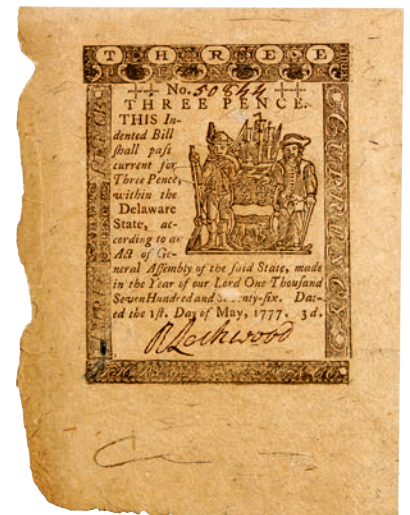 T H R E E
No. 50844
THREE PENCE.
THIS In-
dented Bill
ſhall paſs
current for
Three Pence,
within the
Delaware
State, ac-
cording to an
Act of Ge-
neral Aſſembly of the ſaid State, made
in the Year of our Lord One Thouſand
Seven Hundred and Seventy-ſix. Dat-
ed the 1ſt. Day of May, 1777. 3d.
R Lockwood